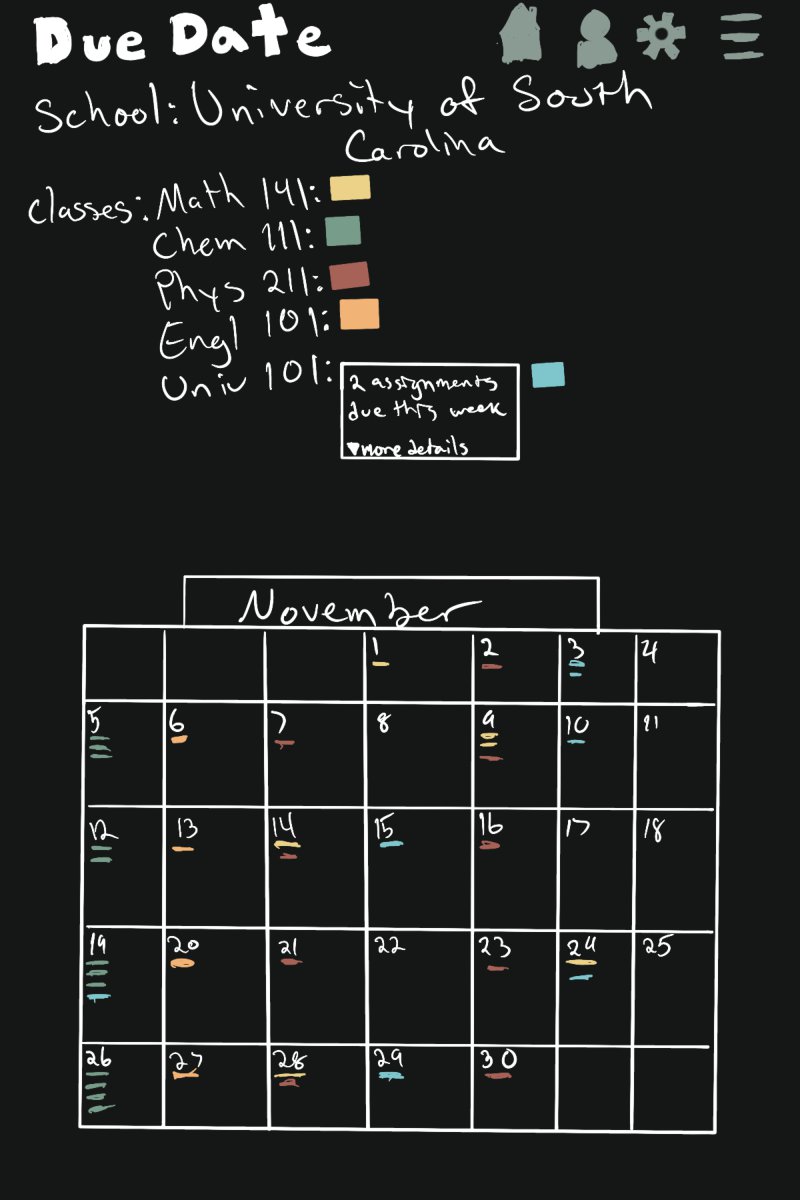 Due Date
School: University of South
Carolina
Classes: Math 141:
Chem 111:
Phys 211:
Engl 101:
Univ 101:
2 assignments
due this week
▼more details
November
1 2 3 4
5 6 7 8 9 10 11
12 13 14 15 16 17 18
19 20 21 22 23 24 25
26 27 28 29 30